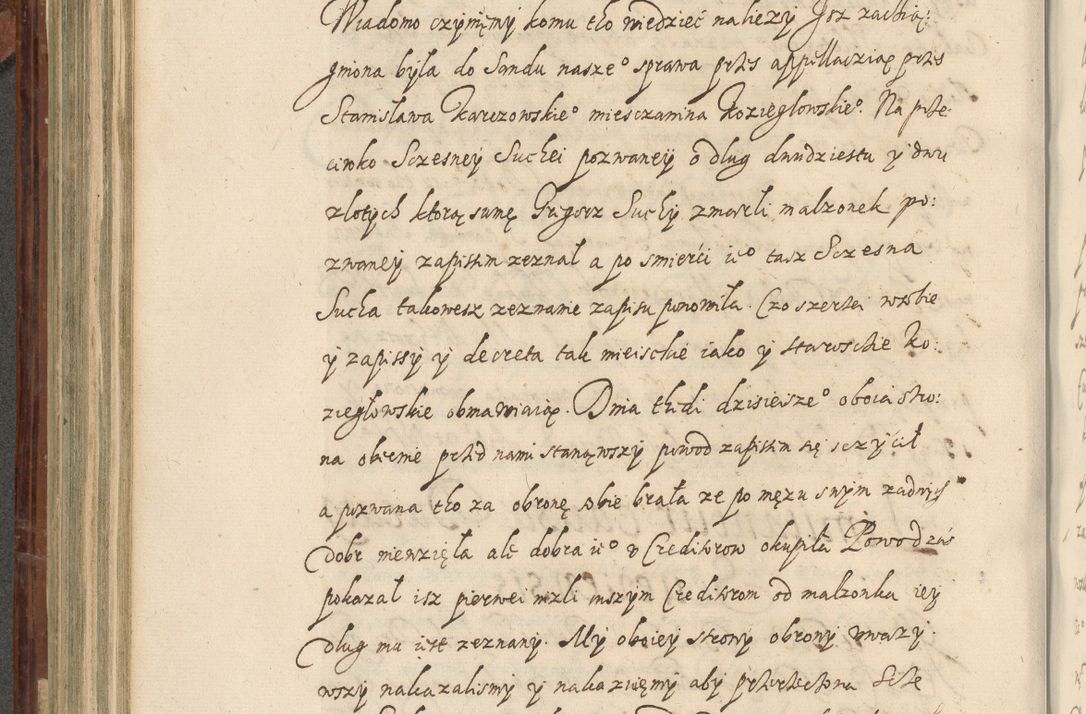 Wiadomo czyniemy komu tho wiedzieć należy Isz zaciią:
gniona była do Sandu nasze° sprawa przes appellaczią przes
Stanisława Karczowskie° miesczanina Kozieglowskie°. Na prze
ciwko Sczesney Suchei pozwaney o dlug dwudziestu y dwu
zlotych ktorą sumę Grzegorz Suchy zmarli malzonek po:
zwaney zapisem zeznał a po smierći ie° tasz Sczesna
Sucha takowesz zeznanie zapisu ponowiła. Czo szerzei wsobie
y zapissy y decreta tak mieiskie iako y staroskie Ko:
zieglowskie obmawiaią. Dnia thedi dzisieisze° oboia stro:
na obecnie przed nami stanąwszy powod zapisem się sczyćił
a pozwana tho za obronę sobie brała ze po męzu swym zadnych
Dobr niewzięła ale dobra ie° v Creditorow okupiła Powod zaś
pokazał isz pierwei nizli inszym Creditorom od malzonka iey
dlug mu iest zeznany. My oboiey strony obrony vwazy:
wszy nakazalismy y nakazuiemy aby przerzeczona Scze